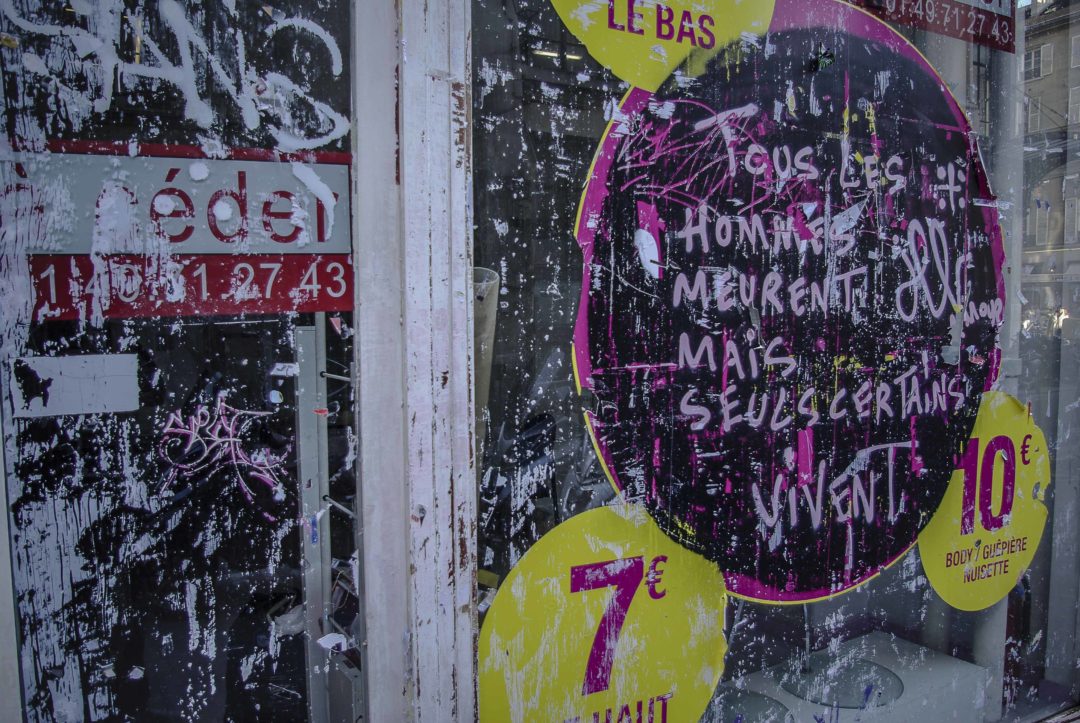 à céder
1.40.71.27.43
LE BAS
01.49.71.27.43
TOUS LES
HOMMES
MEURENT
MAIS
SEULS CERTAINS
VIVENT
10€
BODY / GUÊPIÈRE
NUISETTE
7€
HAUT